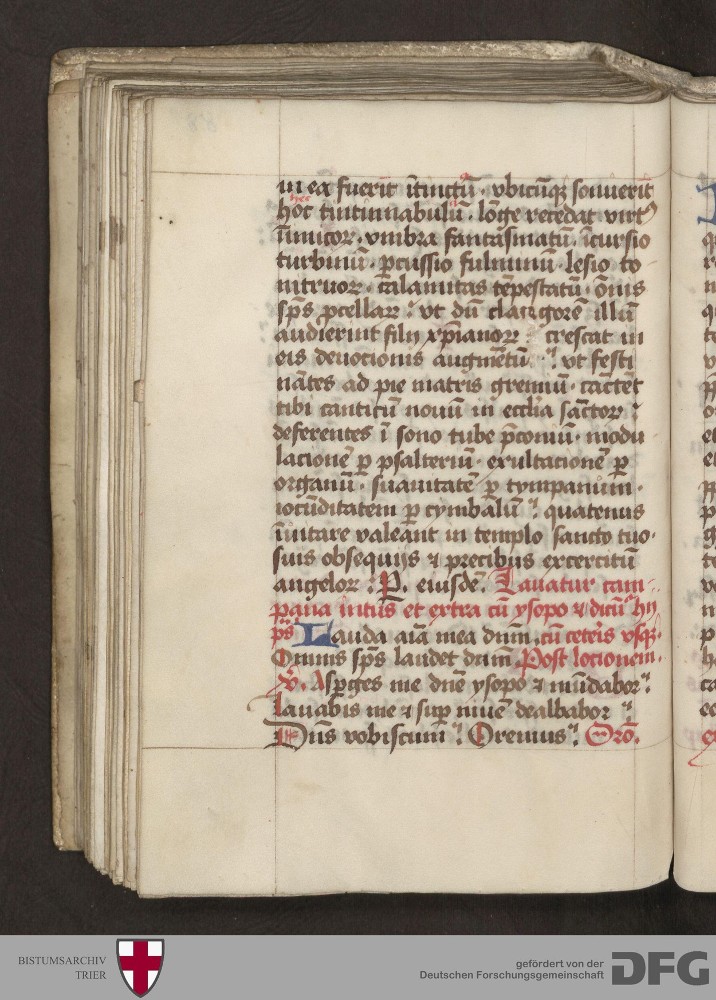 in ea fuerit ītinctū · vbicūqꝫ sonuerit
hec
hoc tintinnabulū · lōge recedat virtꝰ
īimicoꝝ · vmbra fantasmatū · īcursio
turbinū · ꝑcussio fulminū · lesio to
nitruoꝝ · calamitas tēpestatū · ōnis
sp̄s ꝓcellaꝝ : vt dū clangorē illiū
audierint filij xp̄ianoꝝ crescat in
eis deuotionis augmētū : vt festi
nātes ad pie matris gremiū · cātēt
tibi canticū nouū in ecclīa sāctoꝝ :
deferentes ī sono tube p̄coniū · modu
lacionē ꝑ psalteriū · exultacionē ꝑ
organū · suauitatē ꝑ tympanum ·
iocūditatem ꝑ cymbalū : quatenus
īuitare valeant in templo sancto tuo
suis obsequijs ⁊ precibus exercitū
angeloꝝ : P. eiusdē. Lauatur cam
pana intus et extra cū ysopo ⁊ dicūt hy
p̄s Lauda aīa mea dnm̄ · cū ceteris vsqꝫ ·
Omnis sp̄s laudet dnm̄ . Post locionem ·
Asꝑges me dnē ysopo ⁊ mūdaboꝛ :
Lauabis me ⁊ suꝑ niuē dealbabor :
Dn̄s vobiscum : Oremus : Orō.
BISTUMSARCHIV
TRIER
gefördert von der
Deutschen Forschungsgemeinschaft
DFG